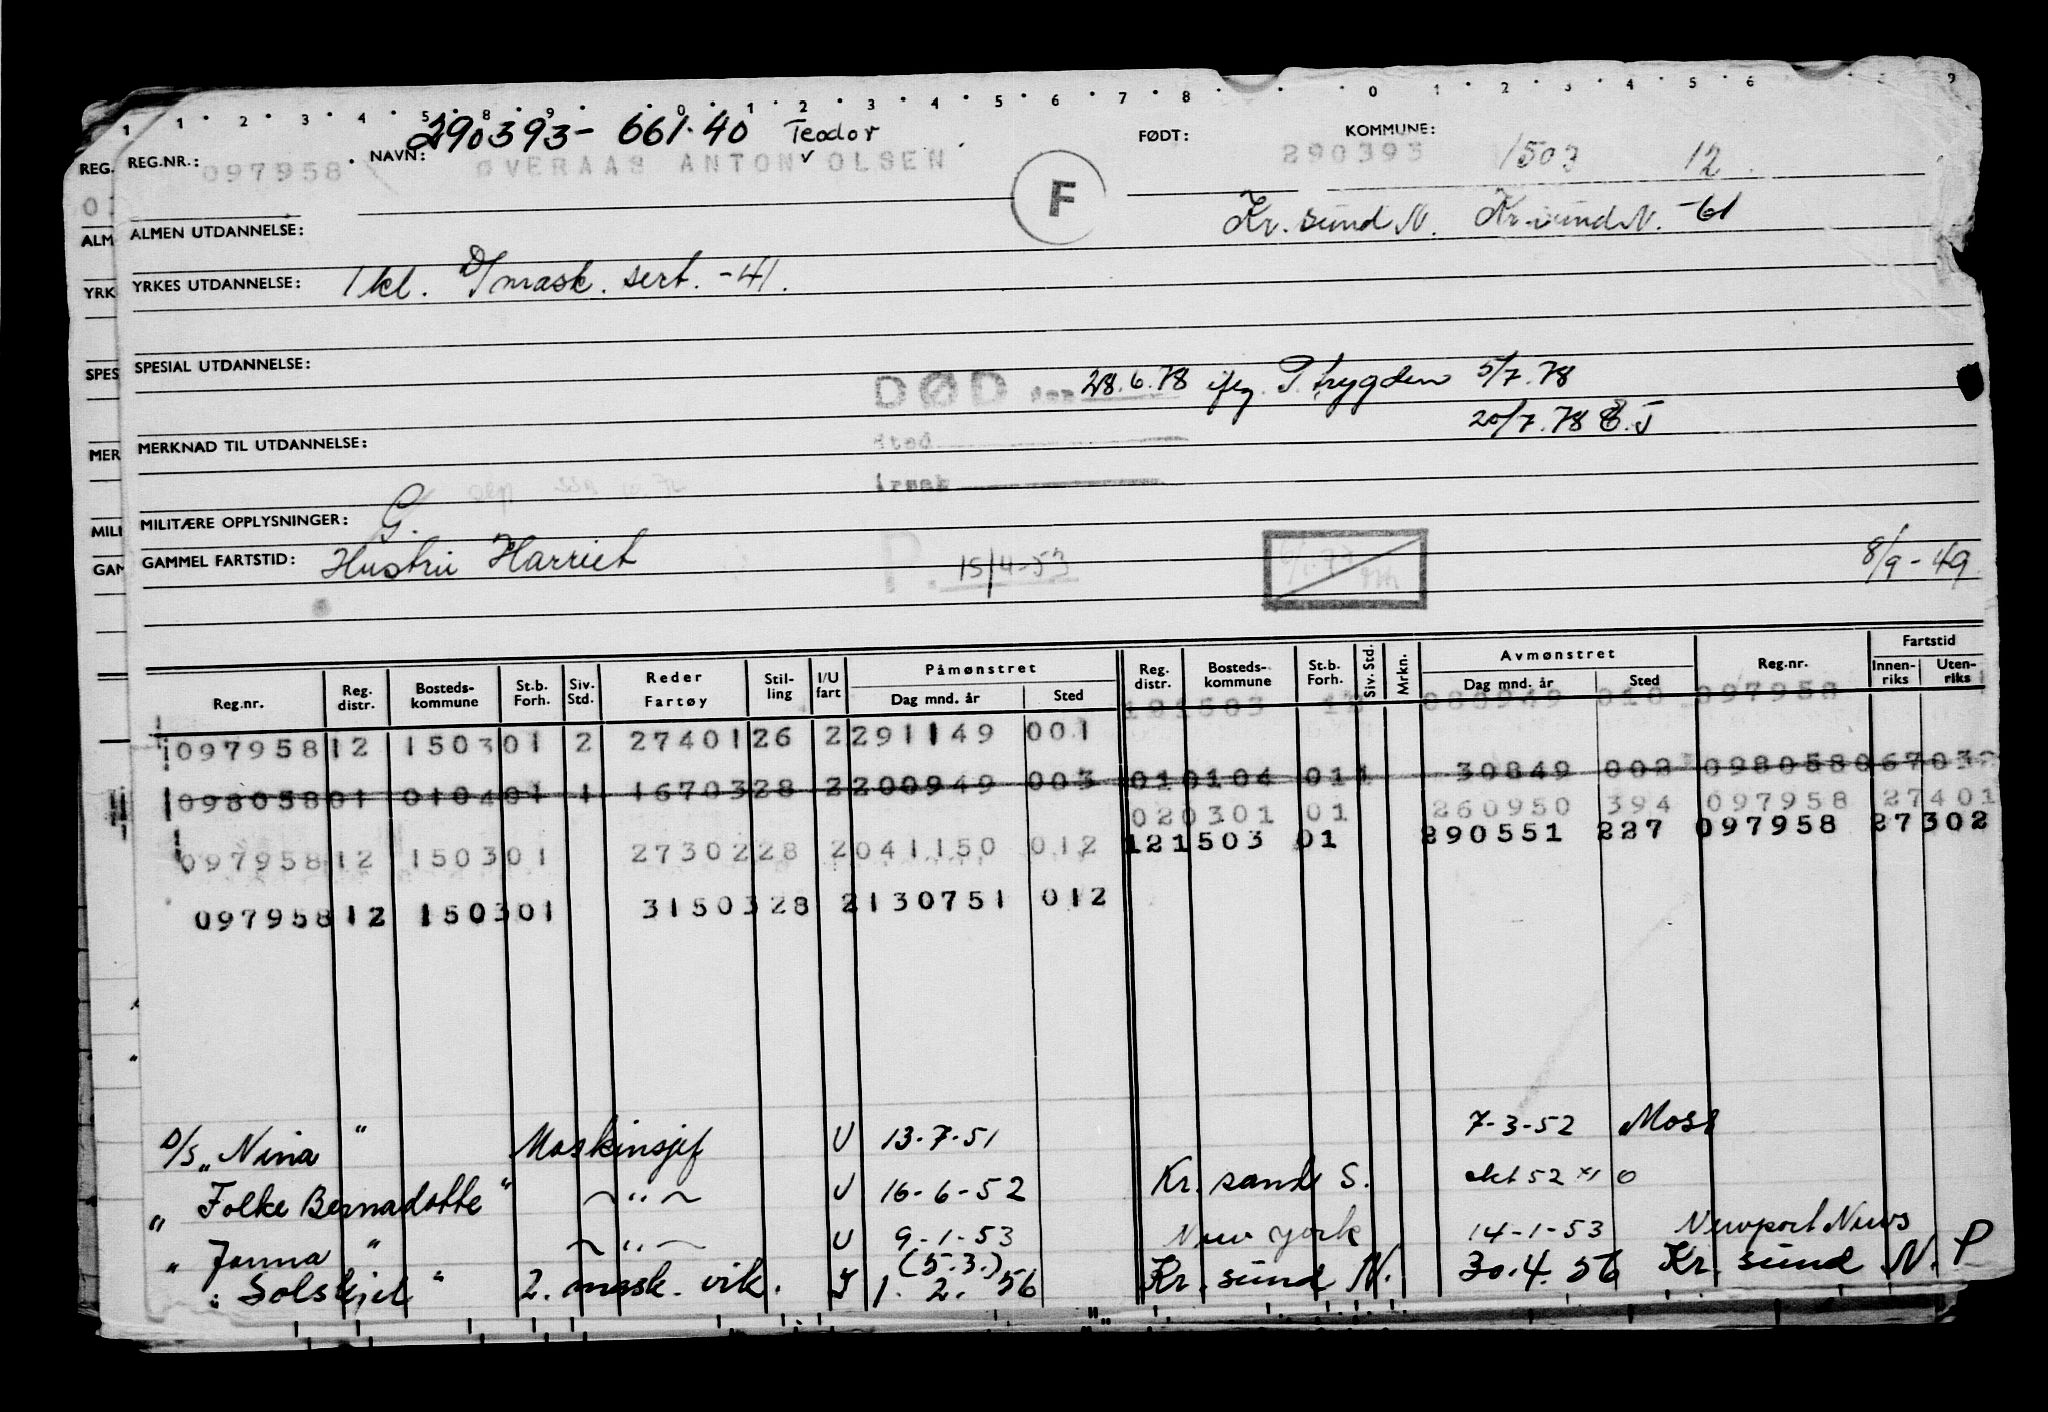 1 1 2 3 4 5 8 9 0 1 2 3 4 5 6 7 8 0 1 2 3 4 5 6 8 9
290393- 661.40 Teodor
REG. REG.NR.: 097958 NAVN: ØVERAAS ANTON OLSEN FØDT: 290393 KOMMUNE: 1503 12
F
Kr. sund N. Kr. sund N. -61
ALM ALMEN UTDANNELSE:
YRK YRKES UTDANNELSE: 1 kl. D/mask. sert. -41.
SPES SPESIAL UTDANNELSE:
DØD den 28.6.78 iflg. P. trygden 5/7.78
sted 20/7.78 E.J
MER MERKNAD TIL UTDANNELSE:
årsak
MILI MILITÆRE OPPLYSNINGER: G.
GAM GAMMEL FARTSTID: Hustru Harriet P. 15/4-53 8/9-49
Reg.nr. Reg. distr. Bosteds-kommune St.b. Forh. Siv. Std. Reder Fartøy Stil-ling I/U fart Påmønstret Dag mnd. år Sted Reg. distr. Bosteds-kommune St.b. Forh. Siv. Std. Mrkn. Avmønstret Dag mnd. år Sted Reg.nr. Fartstid Innen-riks Uten-riks
121503 080949 010 097958
097958 12 1503 01 2 27401 26 2 291149 001
010104 01 1 30849 008 098058 067032
098058 01 0104 01 1 16703 28 2 200949 003
020301 01 260950 394 097958 27401
121503 01 290551 227 097958 27302
097958 12 1503 01 27302 28 2 041150 012
097958 12 1503 01 31503 28 2 130751 012
D/S "Nina" Maskinsjef U 13-7-51 7-3-52 Moss
" Folke Bernadotte" ~"~ U 16-6-52 Kr. sand S. okt 52 0
" Janna " ~"~ U 9-1-53 New York 14-1-53 Newport News
(5.3.)
" Solskjel " 2. mask. vik. I 1. 2. 56 Kr. sund N. 30.4.56 Kr. sund N. P